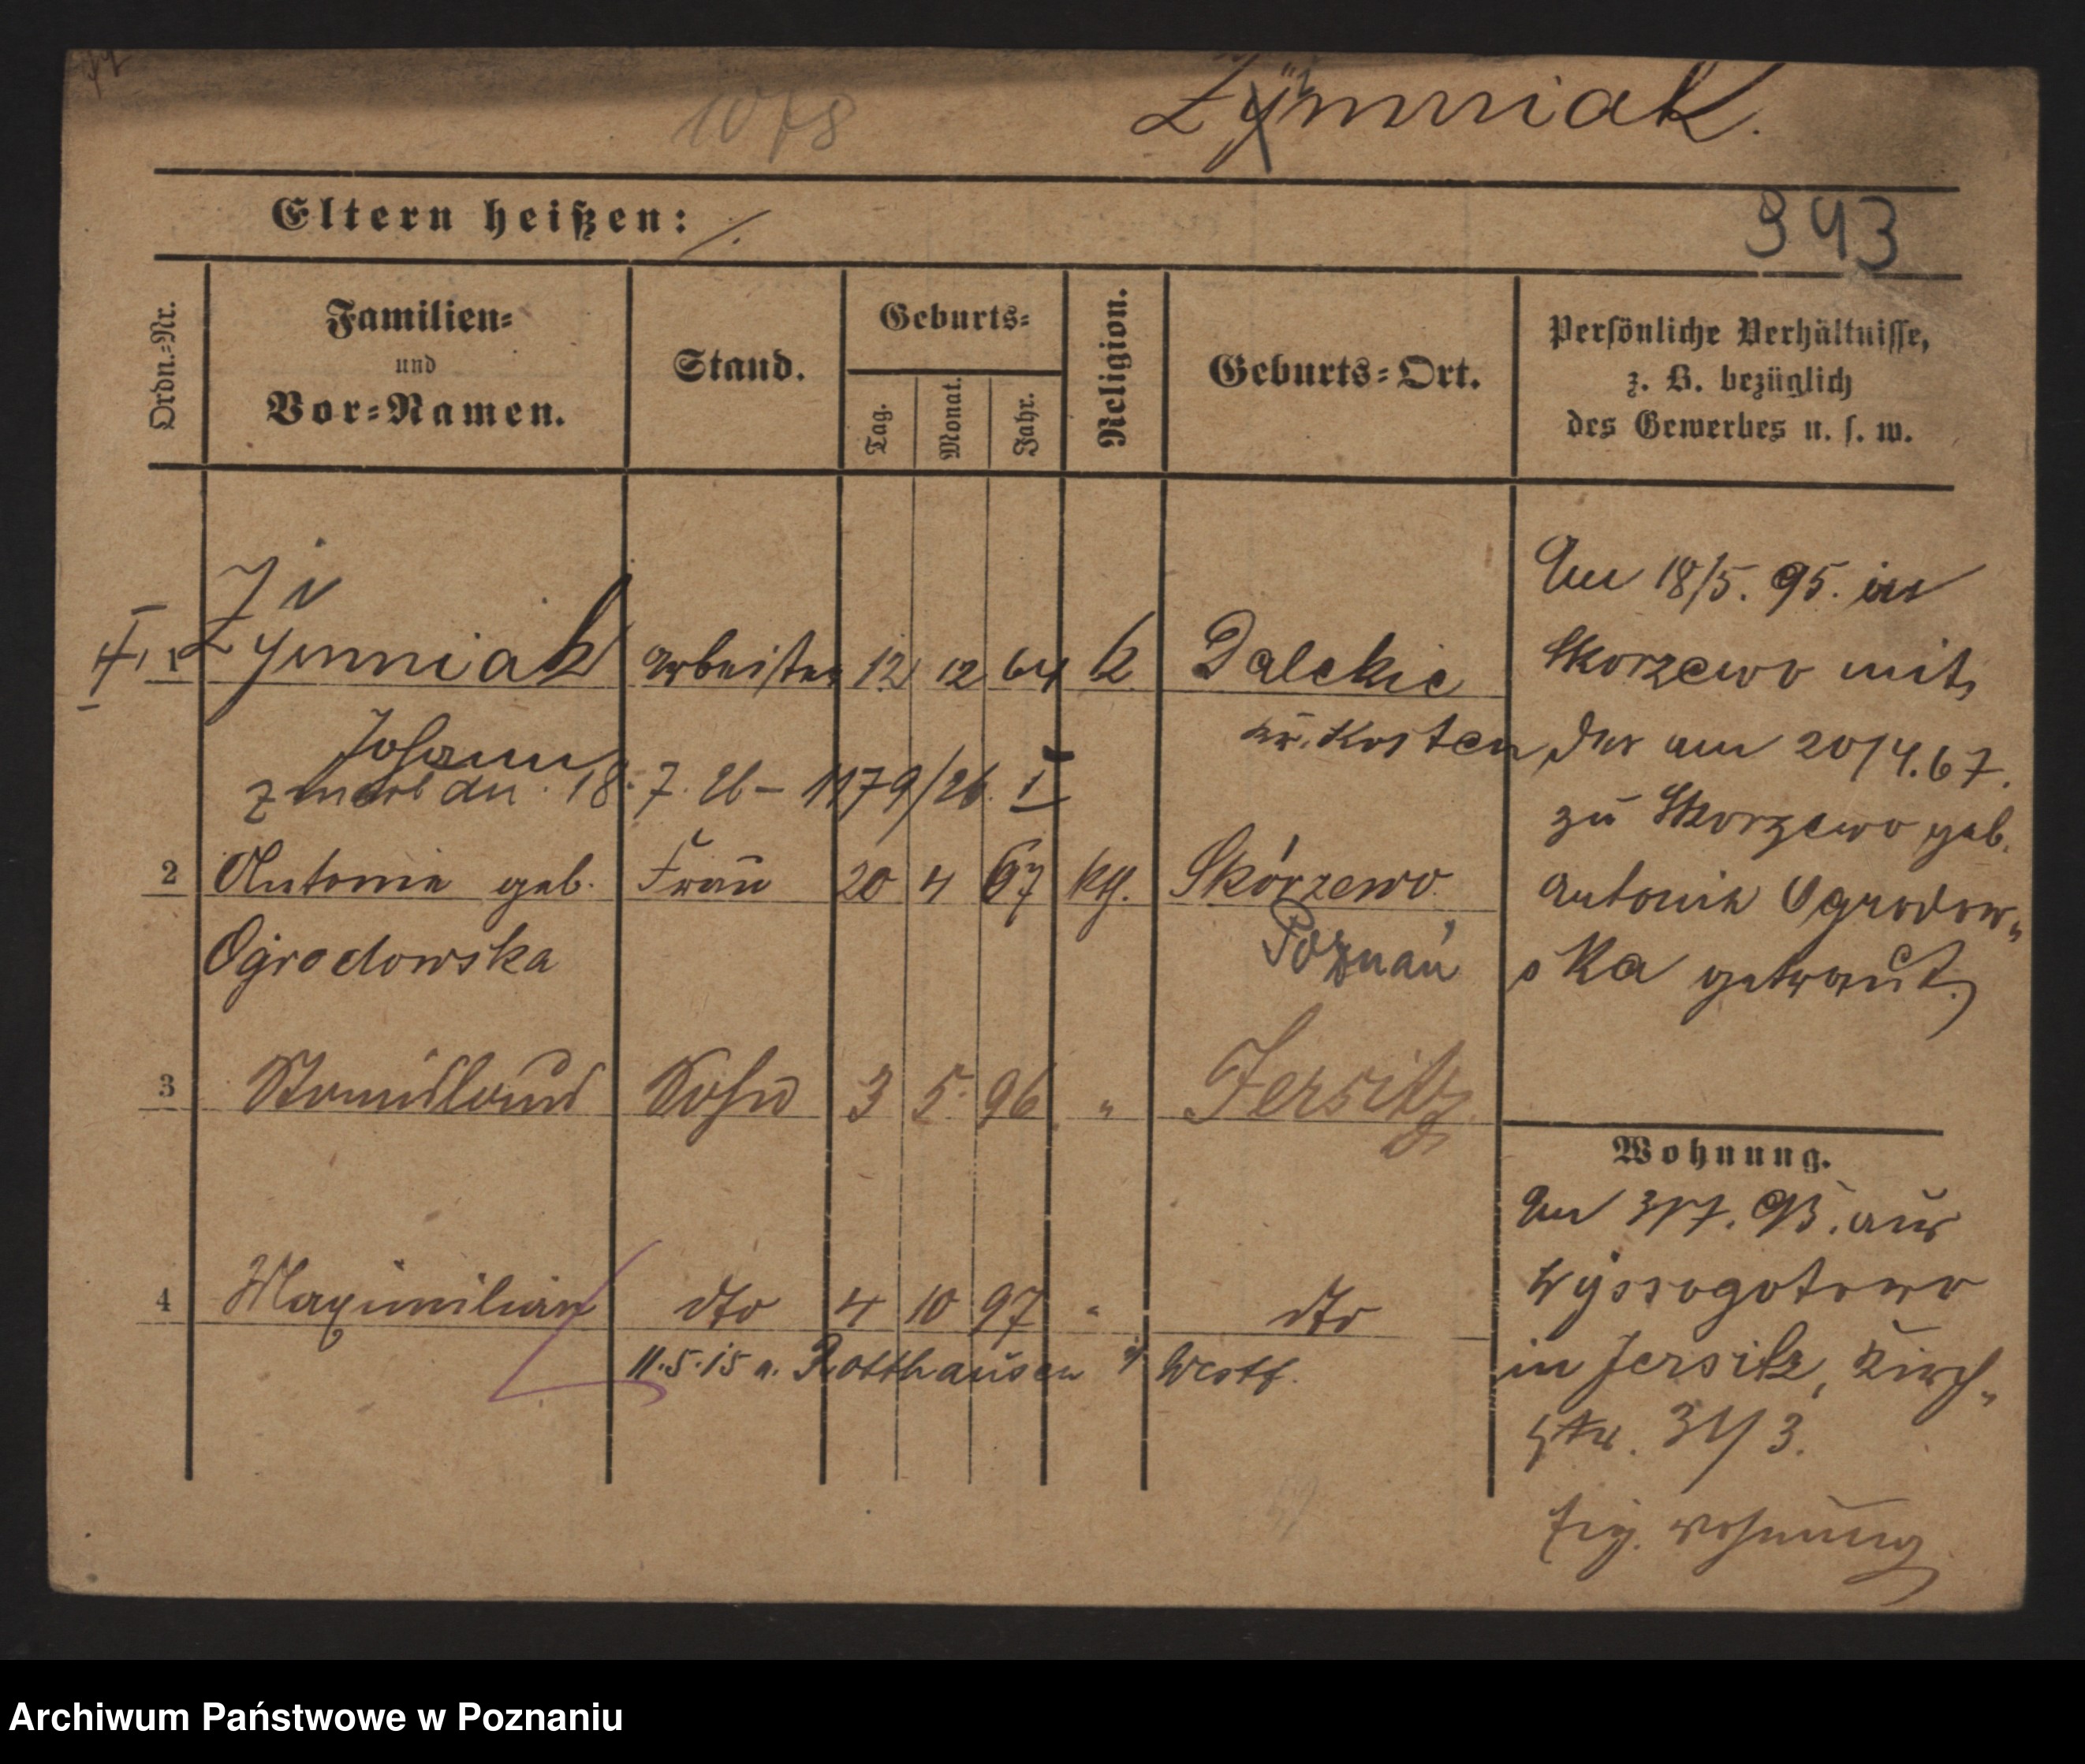 1078
Zymniak.
i
Eltern heißen: ⁒
943
Ordn.-Nr.
Familien-
und
Vor-Namen.
Stand.
Geburts-
Tag.
Monat.
Jahr.
Religion.
Geburts-Ort.
Persönliche Verhältnisse,
z. B. bezüglich
des Gewerbes u. s. w.
Zi
1 Zymniak Arbeiter 12 12 64 k Dalekie
Johann Kr. Kosten
zmarł dn. 18.7.26 - 1179/26 I
2 Antonie geb. Frau 20 4 67 kth. Skórzewo
Ogrodowska Poznań
3 Stanislaus Sohn 3 5 96 " Jersitz
4 Maximilian dto 4 10 97 " dto
11.5.15 n. Rotthausen i/ Westf.
Am 18/5. 95. in
Skorzewo mit
der am 20/4.67.
zu Skorzewo geb.
Antonie Ogrodow-
ska getraut.
Wohnung.
Am 3/7. 95. aus
Wyssogotowo
in Jersitz, Kirch-
str. 34/3.
Eig. Wohnung
Archiwum Państwowe w Poznaniu